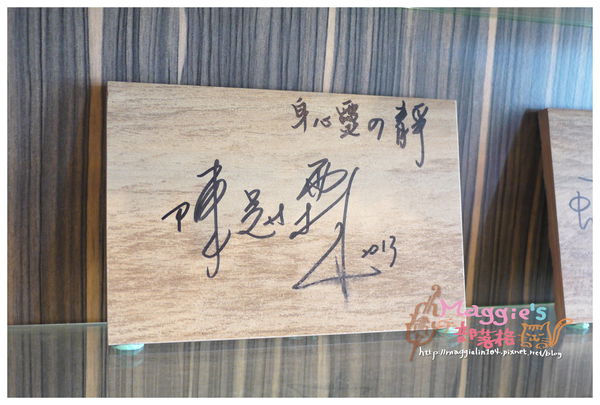 身心靈の靜
陳
2013
Maggie's
部落格
http://maggielin104.pixnet.net/blog